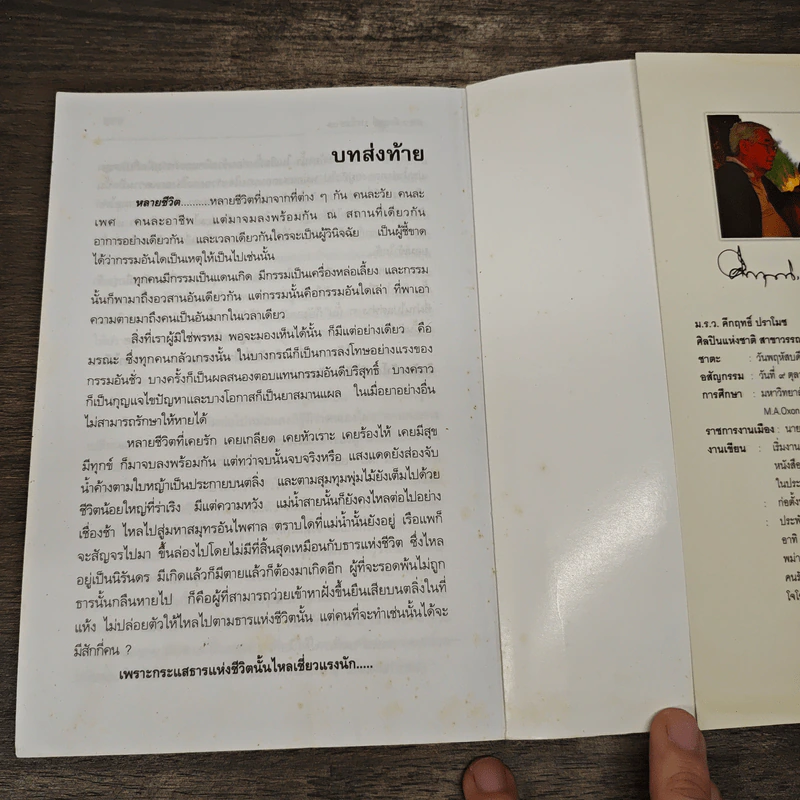 บทส่งท้าย
หลายชีวิต..........หลายชีวิตที่มาจากที่ต่าง ๆ กัน คนละวัย คนละ
เพศ คนละอาชีพ แต่มาจมลงพร้อมกัน ณ สถานที่เดียวกัน
อาการอย่างเดียวกัน และเวลาเดียวกันใครจะเป็นผู้วินิจฉัย เป็นผู้ชี้ขาด
ได้ว่ากรรมอันใดเป็นเหตุให้เป็นไปเช่นนั้น
ทุกคนมีกรรมเป็นแดนเกิด มีกรรมเป็นเครื่องหล่อเลี้ยง และกรรม
นั้นก็พามาถึงอวสานอันเดียวกัน แต่กรรมนั้นคือกรรมอันใดเล่า ที่พาเอา
ความตายมาถึงคนเป็นอันมากในเวลาเดียว
สิ่งที่เราผู้มิใช่พรหม พอจะมองเห็นได้นั้น ก็มีแต่อย่างเดียว คือ
มรณะ ซึ่งทุกคนกลัวเกรงนั้น ในบางกรณีก็เป็นการลงโทษอย่างแรงของ
กรรมอันชั่ว บางครั้งก็เป็นผลสนองตอบแทนกรรมอันดีบริสุทธิ์ บางคราว
ก็เป็นกุญแจไขปัญหาและบางโอกาสก็เป็นยาสมานแผล ในเมื่อยาอย่างอื่น
ไม่สามารถรักษาให้หายได้
หลายชีวิตที่เคยรัก เคยเกลียด เคยหัวเราะ เคยร้องไห้ เคยมีสุข
มีทุกข์ ก็มาจบลงพร้อมกัน แต่ทว่าจบนั้นจบจริงหรือ แสงแดดยังส่องจับ
น้ำค้างตามใบหญ้าเป็นประกายบนตลิ่ง และตามสุมทุมพุ่มไม้ยังเต็มไปด้วย
ชีวิตน้อยใหญ่ที่ร่าเริง มีแต่ความหวัง แม่น้ำสายนั้นก็ยังคงไหลต่อไปอย่าง
เชื่องช้า ไหลไปสู่มหาสมุทรอันไพศาล ตราบใดที่แม่น้ำนั้นยังอยู่ เรือแพก็
จะสัญจรไปมา ขึ้นล่องไปโดยไม่มีที่สิ้นสุดเหมือนกับธารแห่งชีวิต ซึ่งไหล
อยู่เป็นนิรันดร มีเกิดแล้วก็มีตายแล้วก็ต้องมาเกิดอีก ผู้ที่จะรอดพ้นไม่ถูก
ธารนั้นกลืนหายไป ก็คือผู้ที่สามารถว่ายเข้าหาฝั่งขึ้นยืนเสียบนตลิ่งในที่
แห้ง ไม่ปล่อยตัวให้ไหลไปตามธารแห่งชีวิตนั้น แต่คนที่จะทำเช่นนั้นได้จะ
มีสักกี่คน ?
เพราะกระแสธารแห่งชีวิตนั้นไหลเชี่ยวแรงนัก.....
ม.ร.ว. คึกฤทธิ์ ปราโมช
ศิลปินแห่งชาติ สาขาวรรณ
ชาตะ : วันพฤหัสบดี
อสัญกรรม : วันที่ ๙ ตุล
การศึกษา : มหาวิทยาล
M.A.Oxon
ราชการงานเมือง : นาย
งานเขียน : เริ่มงาน
หนังสือ
ในประ
: ก่อตั้ง
: ประพัน
อาทิ
พม่า
คนรั
โจโ